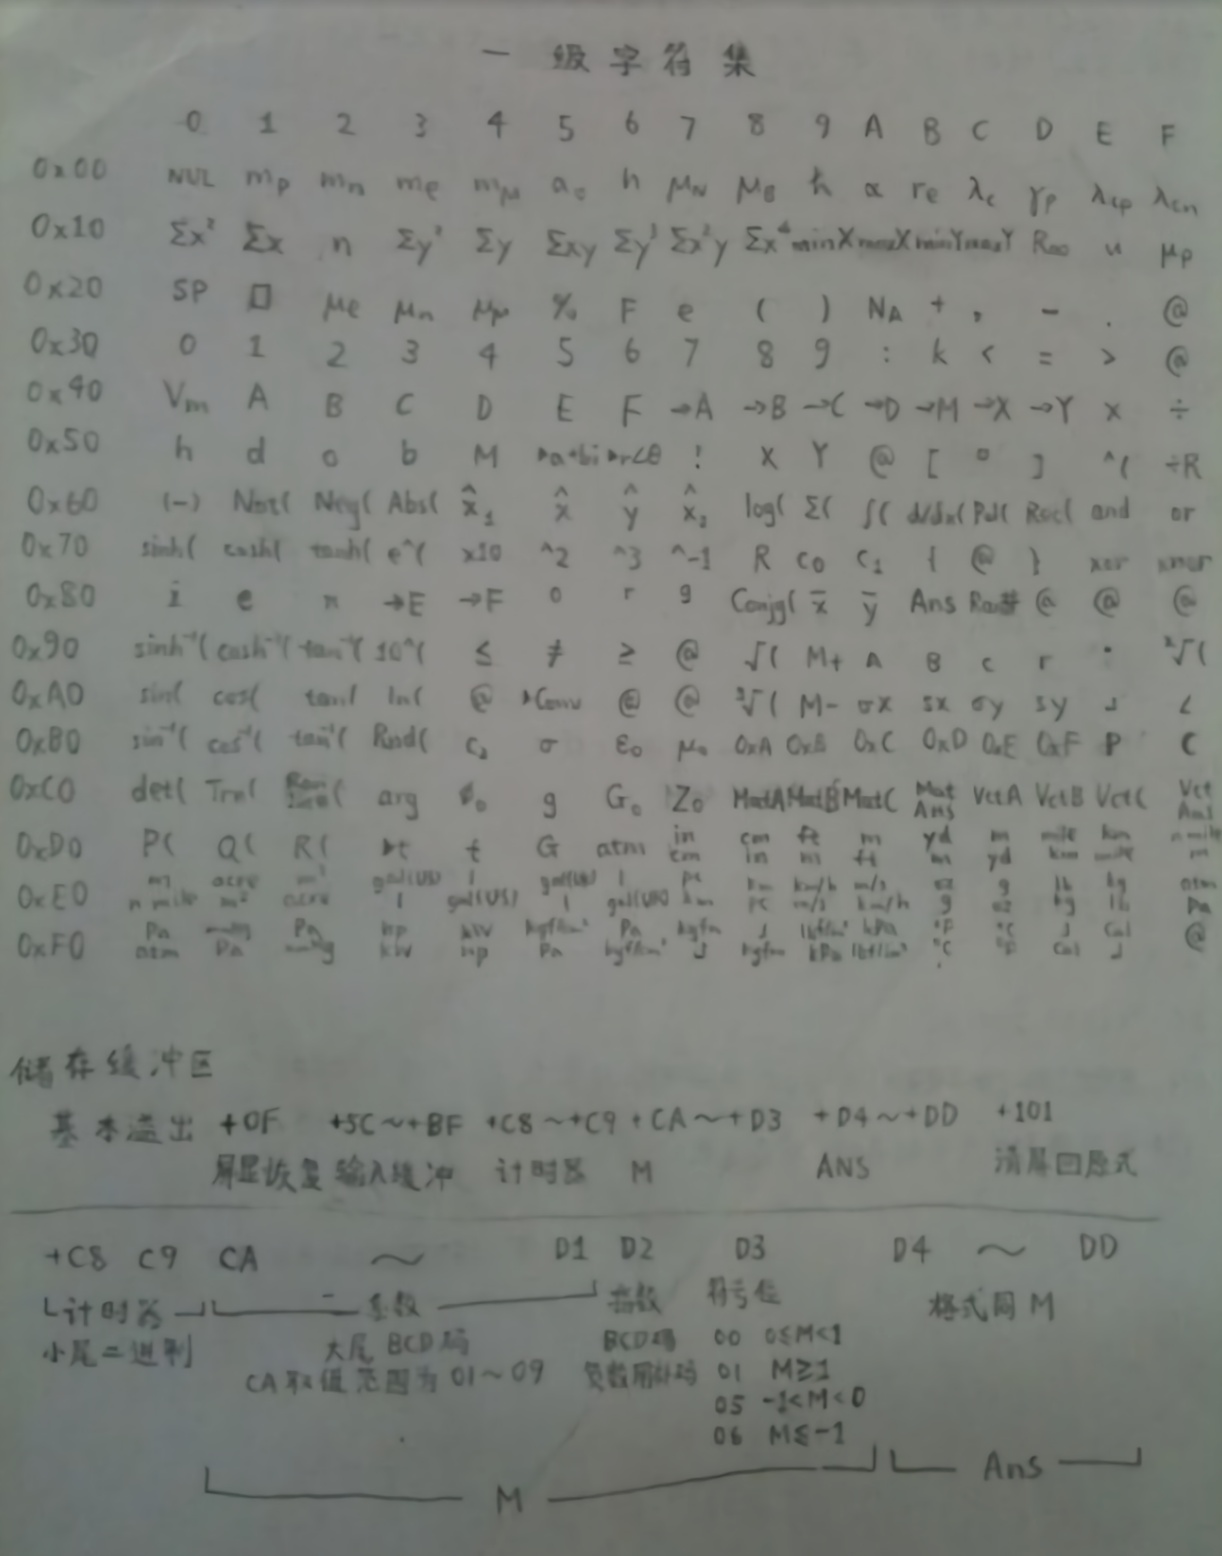 一 级 字 符 集
0 1 2 3 4 5 6 7 8 9 A B C D E F
0x00 NUL mp mn me mμ a₀ h μN μB ħ α re λc γp λcp λcn
0x10 Σx² Σx n Σy² Σy Σxy Σy³ Σx²y Σx⁴ minX maxX minY maxY R∞ u μp
0x20 SP μe μn μμ % F e ( ) NA + , - . @
0x30 0 1 2 3 4 5 6 7 8 9 : k < = > @
0x40 Vm A B C D E F →A →B →C →D →M →X →Y × ÷
0x50 h d o b M ▸a+bi ▸r∠θ ! X Y @ [ ] ^( ÷R
0x60 (-) Not( Neg( Abs( x̂₁ x̂ ŷ x̂₂ log( Σ( ∫( d/dx( Pol( Rec( and or
0x70 sinh( cosh( tanh( e^( x10 ^2 ^3 ^-1 R c0 c₁ { @ } xor xnor
0x80 i e π →E →F o r g Conjg( x̄ ȳ Ans Ran# @ @ @
0x90 sinh⁻¹( cosh⁻¹( tan⁻¹( 10^( ≤ ≠ ≥ @ √( M+ A B C r : ˣ√(
0xA0 sin( cos( tan( ln( @ ▸Conv @ @ ³√( M- σx sx σy sy ┘ ∠
0xB0 sin⁻¹( cos⁻¹( tan⁻¹( Rnd( c₂ σ ε₀ μ₀ 0xA 0xB 0xC 0xD 0xE 0xF P C
0xC0 det( Trn( arg Φ₀ g G₀ Z₀ MatA MatB MatC Mat Ans VctA VctB VctC Vct Ans
0xD0 P( Q( R( ▸t t G atm in cm cm in ft m m ft yd m m yd mile km km mile n mile m
0xE0 m n mile acre m² m² acre gal(US) l l gal(US) gal(UK) l l gal(UK) pc km km pc km/h m/s m/s km/h oz g g oz lb kg kg lb atm Pa
0xF0 Pa atm mmHg Pa Pa mmHg hp kW kW hp kgf/cm² Pa Pa kgf/cm² kgfm J J kgfm lbf/in² kPa kPa lbf/in² °F °C °C °F J Cal Cal J @
储存缓冲区
基本溢出 +0F +5C～+BF +C8～+C9 +CA～+D3 +D4～+DD +101
屏显恢复 输入缓冲 计时器 M ANS 清屏回原式
+C8 C9 CA ～ D1 D2 D3 D4 ～ DD
计时器 基数 指数 符号位 格式同M
小尾二进制 大尾 BCD码 BCD码 00 0≤M<1
CA取值范围为 01～09 负数用补码 01 M≥1
05 -1<M<0
06 M≤-1
M Ans